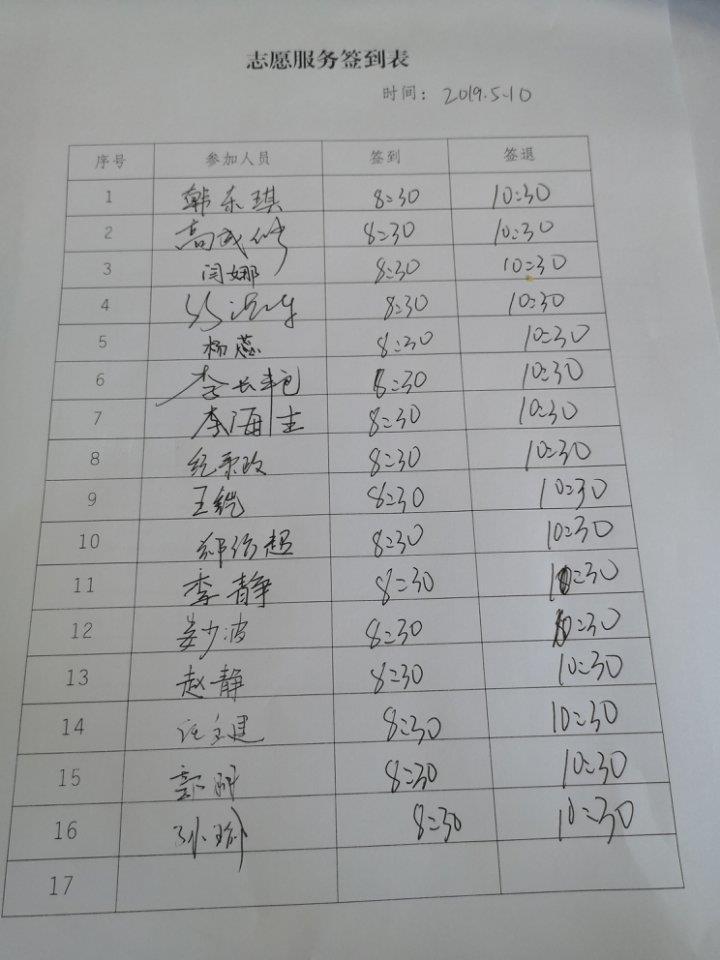 志愿服务签到表
时间: 2019.5.10
序号 参加人员 签到 签退
1 韩东琪 8:30 10:30
2 高 8:30 10:30
3 闫娜 8:30 10:30
4 8:30 10:30
5 杨蕊 8:30 10:30
6 李长 8:30 10:30
7 李海生 8:30 10:30
8 纪 8:30 10:30
9 王铠 8:30 10:30
10 超 8:30 10:30
11 李静 8:30 10:30
12 姜少波 8:30 10:30
13 赵静 8:30 10:30
14 文建 8:30 10:30
15 郭 8:30 10:30
16 孙 8:30 10:30
17